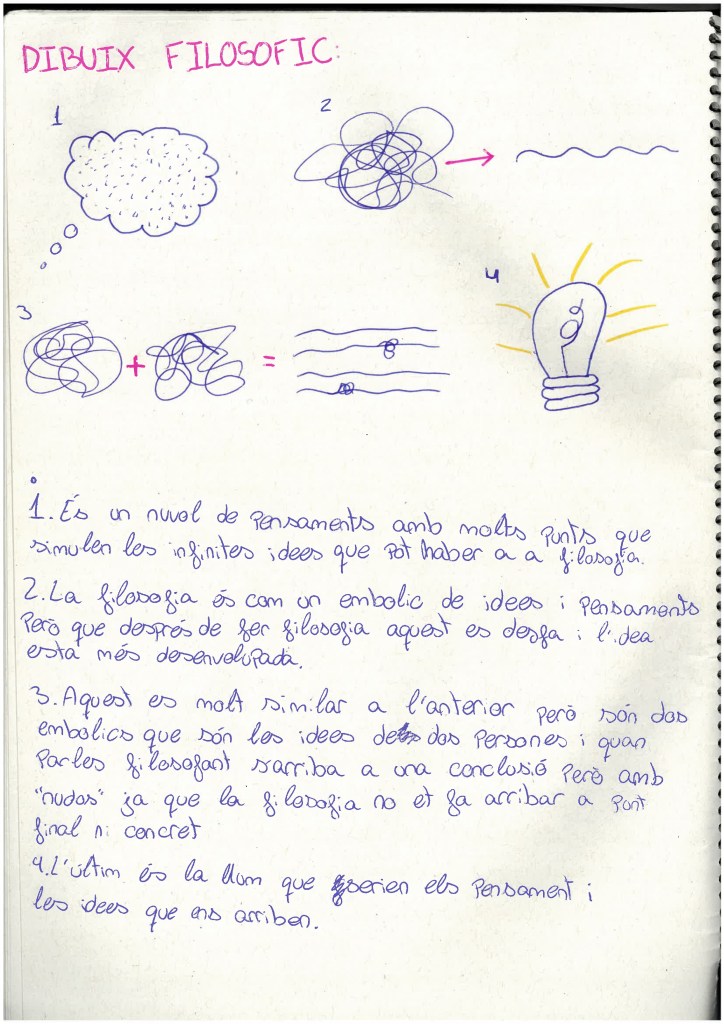 DIBUIX FILOSOFIC:
1
2
3
+
=
4
1. És un nuvol de pensaments amb molts punts que
simulen les infinites idees que pot haber a a filosofia.
2. La filosofia és com un embolic de idees i pensaments
Però que després de fer filosofia aquest es desfa i l'idea
esta més desenvolupada.
3. Aquest es molt similar a l'anterior però són dos
embolics que són les idees de dos persones i quan
Parles filosofant s'arriba a una conclusió però amb
"nudos" ja que la filosofia no et fa arribar a punt
final ni concret
4. L'últim és la llum que serien els pensament i
les idees que ens arriben.